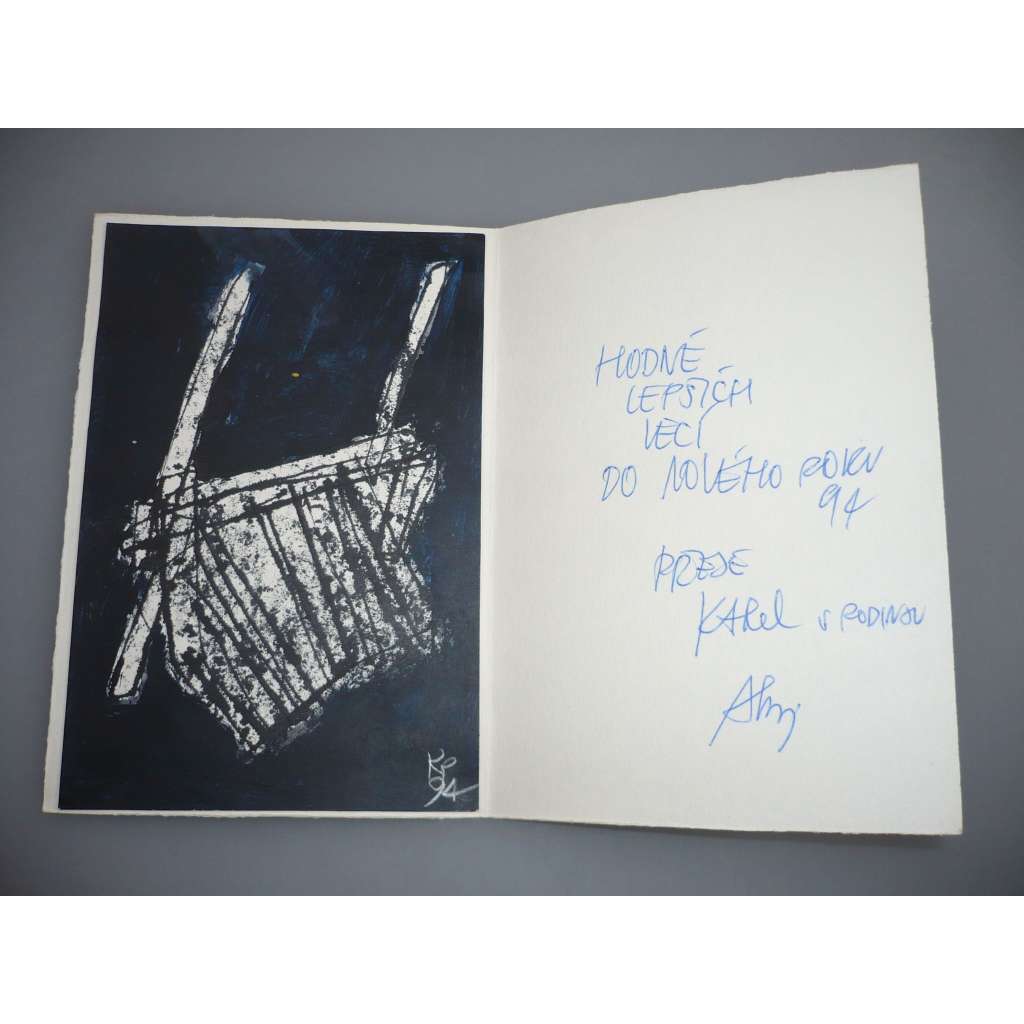 KP
94
HODNĚ
LEPŠÍCH
VĚCÍ
DO NOVÉHO ROKU
94
PŘEJE
KAREL S RODINOU